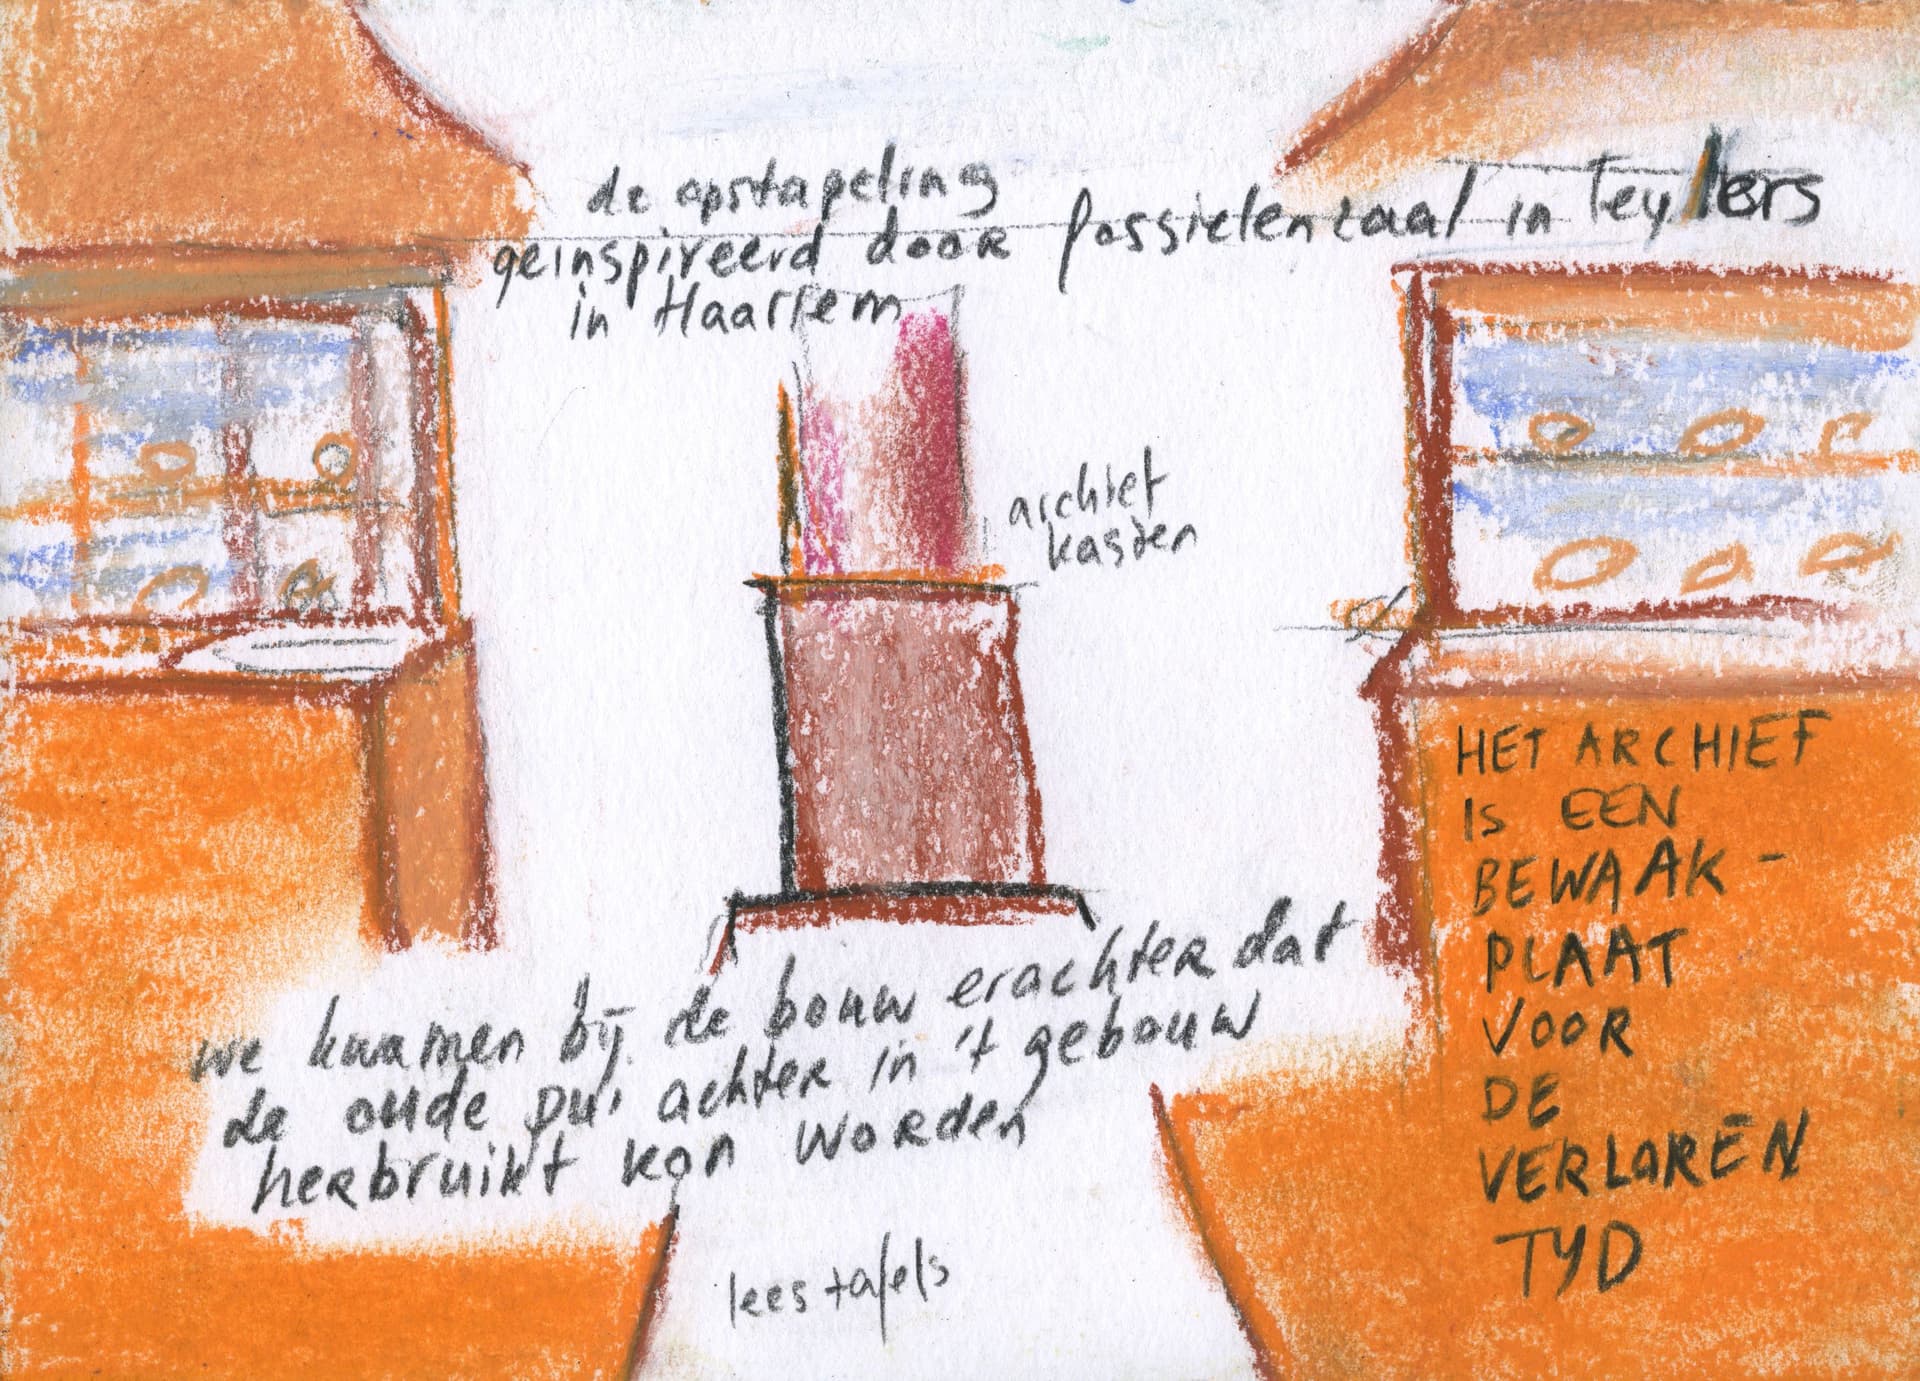 de opstapeling
geinspireerd door fossielenzaal in Teylers
in Haarlem
archief
kasten
HET ARCHIEF
IS EEN
BEWAAK-
PLAAT
VOOR
DE
VERLOREN
TYD
we kwamen bij de bouw erachter dat
de oude pui achter in 't gebouw
herbruikt kon worden
leestafels